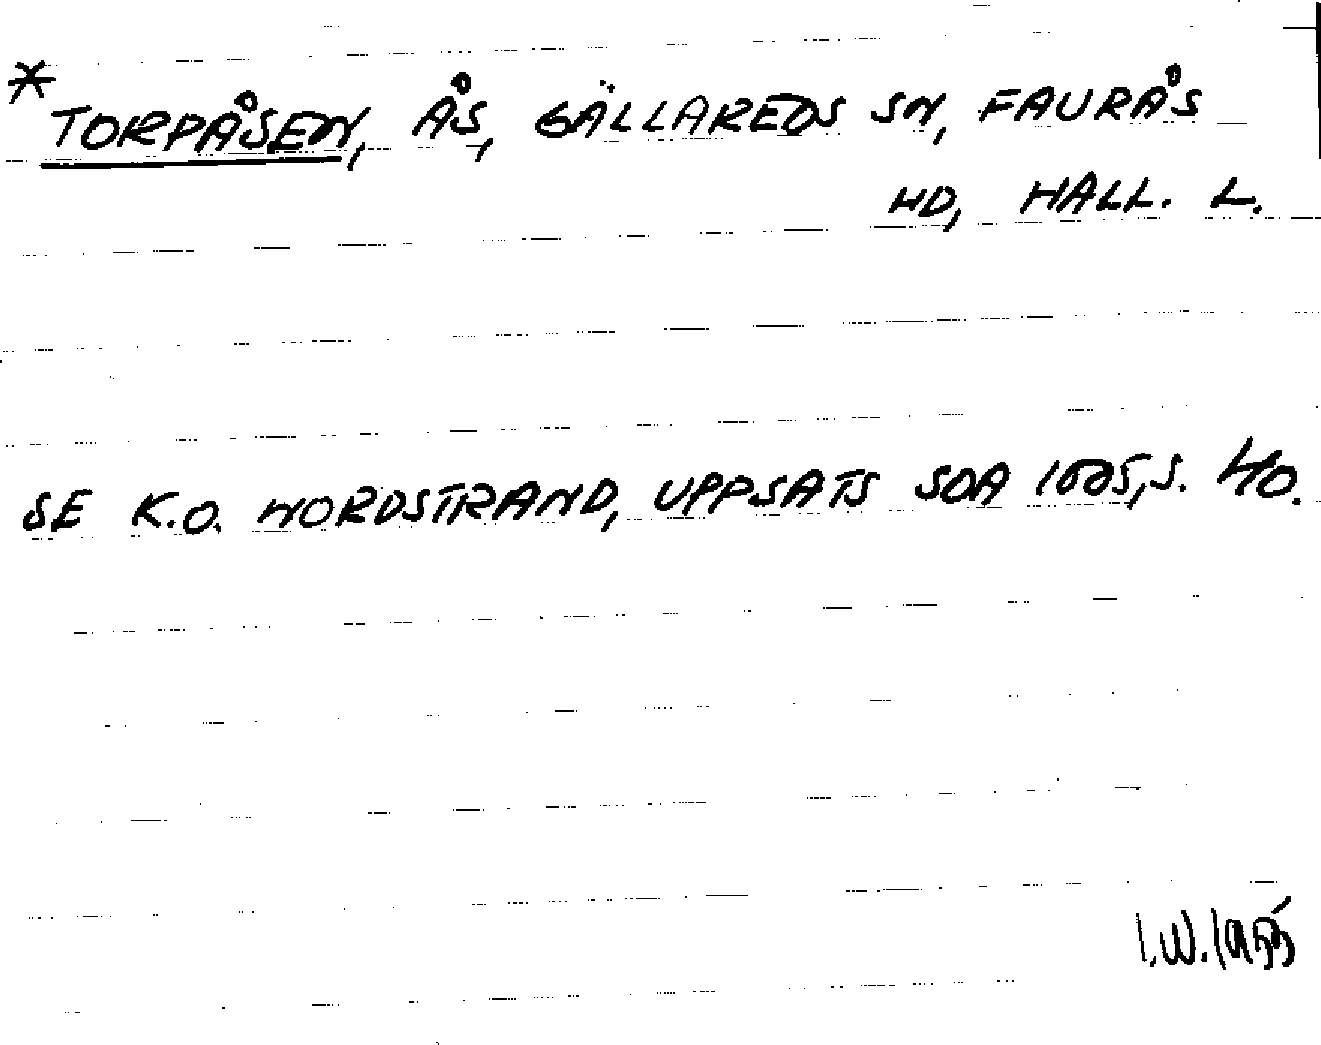 *TORPÅSEN, ÅS, GÄLLAREDS SN, FAURÅS
HD, HALL. L.
SE K.O. NORDSTRAND, UPPSATS SOA S. 40.
I.W.